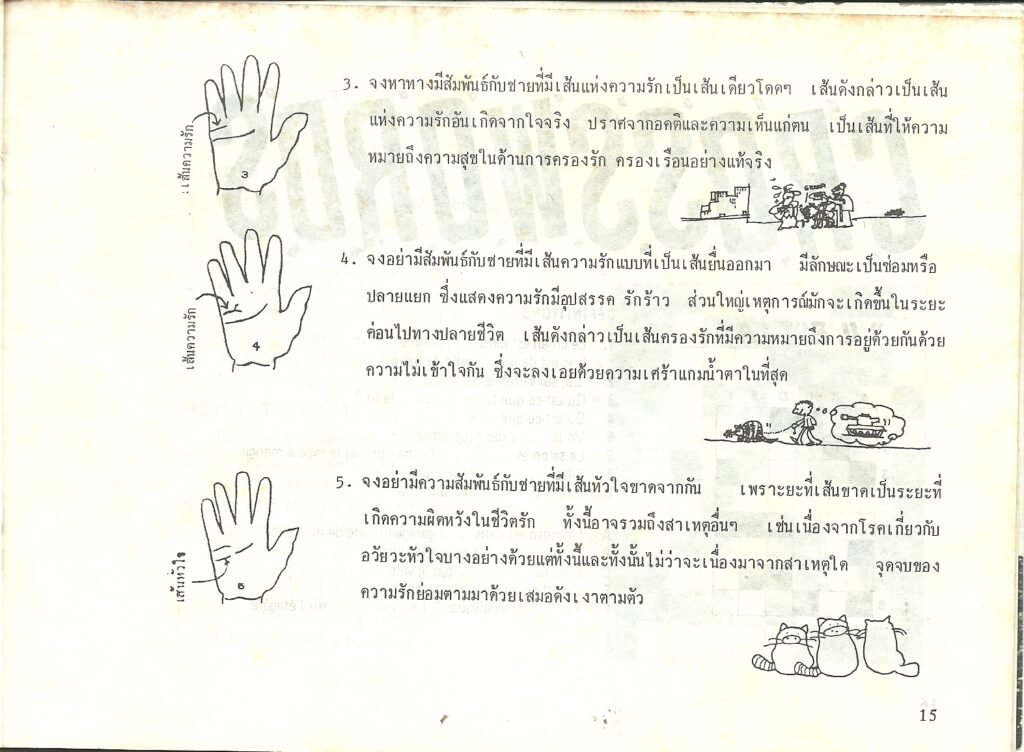 3. จงหาทางมีสัมพันธ์กับชายที่มีเส้นแห่งความรักเป็นเส้นเดียวโดดๆ เส้นดังกล่าวเป็นเส้น
แห่งความรักอันเกิดจากใจจริง ปราศจากอคติและความเห็นแก่ตน เป็นเส้นที่ให้ความ
หมายถึงความสุขในด้านการครองรัก ครองเรือนอย่างแท้จริง
เส้นความรัก
3
4. จงอย่ามีสัมพันธ์กับชายที่มีเส้นความรักแบบที่เป็นเส้นยื่นออกมา มีลักษณะเป็นซ่อมหรือ
ปลายแยก ซึ่งแสดงความรักมีอุปสรรค รักร้าว ส่วนใหญ่เหตุการณ์มักจะเกิดขึ้นในระยะ
ค่อนไปทางปลายชีวิต เส้นดังกล่าวเป็นเส้นครองรักที่มีความหมายถึงการอยู่ด้วยกันด้วย
ความไม่เข้าใจกัน ซึ่งจะลงเอยด้วยความเศร้าแกมน้ำตาในที่สุด
เส้นความรัก
4
5. จงอย่ามีความสัมพันธ์กับชายที่มีเส้นหัวใจขาดจากกัน เพราะยะที่เส้นขาดเป็นระยะที่
เกิดความผิดหวังในชีวิตรัก ทั้งนี้อาจรวมถึงสาเหตุอื่นๆ เช่นเนื่องจากโรคเกี่ยวกับ
อวัยวะหัวใจบางอย่างด้วยแต่ทั้งนี้และทั้งนั้นไม่ว่าจะเนื่องมาจากสาเหตุใด จุดจบของ
ความรักย่อมตามมาด้วยเสมอดังเงาตามตัว
เส้นหัวใจ
5
15